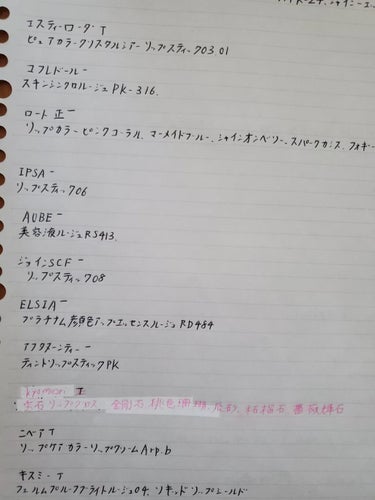 エスティローダー T
ピュアカラークリスタルシアーリップスティック03.01
コフレドール ー
スキンシンクロルージュ PK-316.
ロート 正
リップカラーピンクコーラル、マーメイドブルー、シャインオンベリー、スパークカシス、フォギー
IPSA ー
リップスティック06
AUBE ー
美容液ルージュRS413.
ジョインSCF ー
リップスティック08
ELSIA ー
プラチナム顔色アップエッセンスルージュRD484
アフタヌーンティー ー
ティントリップスティックPK
宝石リップグロス、金剛石、桃色珊瑚、柘榴石、薔薇輝石
ニベア T
リップケアカラーリップクリームArp.b
キスミー T
フェルムプルーフブライトルージュ04、リキッドリップシールド